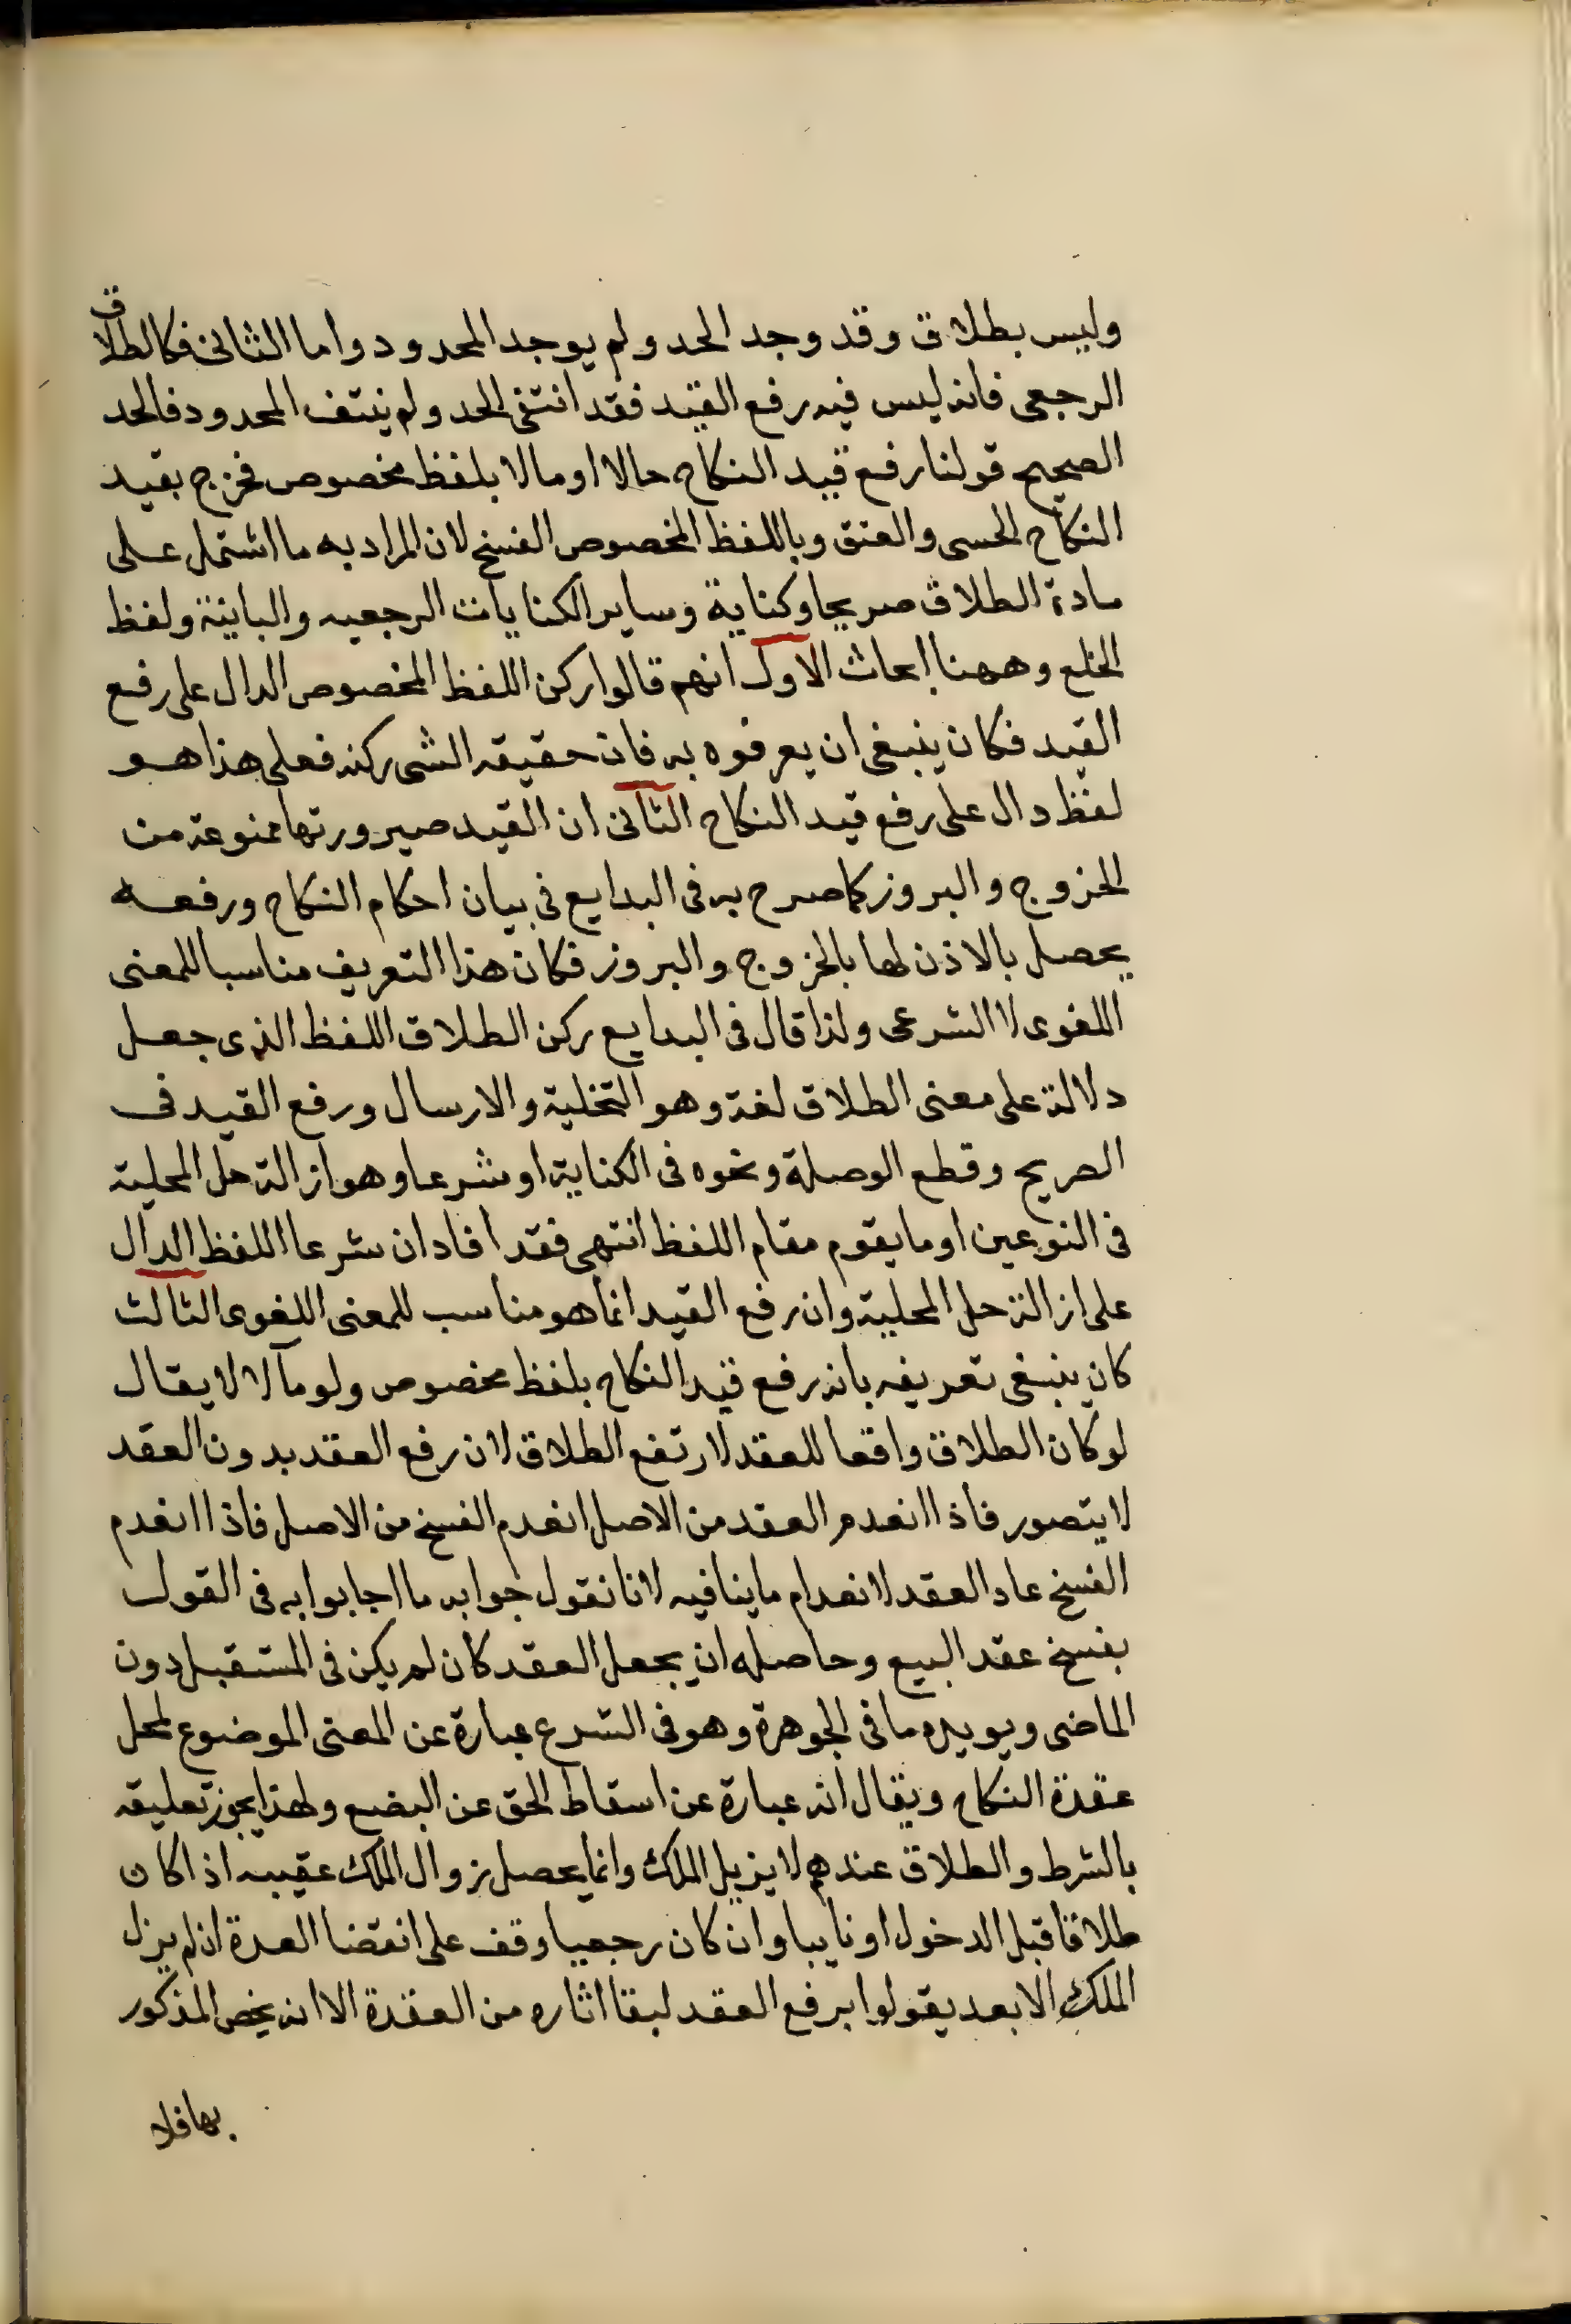 وليس بطلاق وقد وجد الحد ولم يوجد المحدود واما الثاني فكالطلاق
الرجعى فانه ليس فيه رفع القيد فقد انتفى الحد ولم ينتف المحدود فالحد
الصحيح قولنا رفع قيد النكاح حالا او مالا بلفظ مخصوص فخرج بقيد
النكاح الحسى والعتق وباللفظ المخصوص الفسخ لان المراد به ما اشتمل على
مادة الطلاق صريحا وكناية وساير الكنايات الرجعيه والباينة ولفظ
الخلع وههنا ابحاث الاول انهم قالوا ركن اللفظ المخصوص الدال على رفع
القيد فكان ينبغى ان يعرفوه به فان حقيقه الشى ركنه فعلى هذا هو
لفظ دال على رفع قيد النكاح الثانى ان القيد صيرورتها ممنوعة من
الخروج والبروز كما صرح به فى البدايع فى بيان احكام النكاح ورفعه
يحصل بالاذن لها بالخروج والبروز فكان هذا التعريف مناسبا للمعنى
اللغوى لا الشرعى ولذا قال فى البدايع ركن الطلاق اللفظ الذى جعل
دلالة على معنى الطلاق لغة وهو التخلية والارسال ورفع القيد فى
الصريح وقطع الوصلة ونحوه فى الكناية او شرعا وهو ازالة حل المحلية
فى النوعين او ما يقوم مقام اللفظ انتهى فقد افاد ان شرعا اللفظ الدال
على ازالة حل المحلية وان رفع القيد انما هو مناسب للمعنى اللغوى الثالث
كان ينبغى تعريفه بانه رفع قيد النكاح بلفظ مخصوص ولو مآلا لا يقال
لو كان الطلاق واقعا للعقد لارتفع الطلاق لان رفع العقد بدون العقد
لا يتصور فاذا انعدم العقد من الاصل انعدم الفسخ من الاصل فاذا انعدم
الفسخ عاد العقد لانعدام ما ينافيه لانا نقول جوابه ما اجابوا به فى القول
بفسخ عقد البيع وحاصله ان يجعل العقد كان لم يكن فى المستقبل دون
الماضى ويويده ما فى الجوهرة وهو فى الشرع عبارة عن المعنى الموضوع لحل
عقدة النكاح ويقال انه عبارة عن اسقاط الحق عن البضع ولهذا يجوز تعليقه
بالشرط والطلاق عندهم لا يزيل الملك وانما يحصل زوال الملك عقيبه اذا كان
طلاقا قبل الدخول او نايبا وان كان رجعيا وقف على انقضا العدة ان لم يزل
الملك الا بعد يقولوا برفع العقد لبقا اثاره من العقدة الا انه يخص المذكور
بها فلا